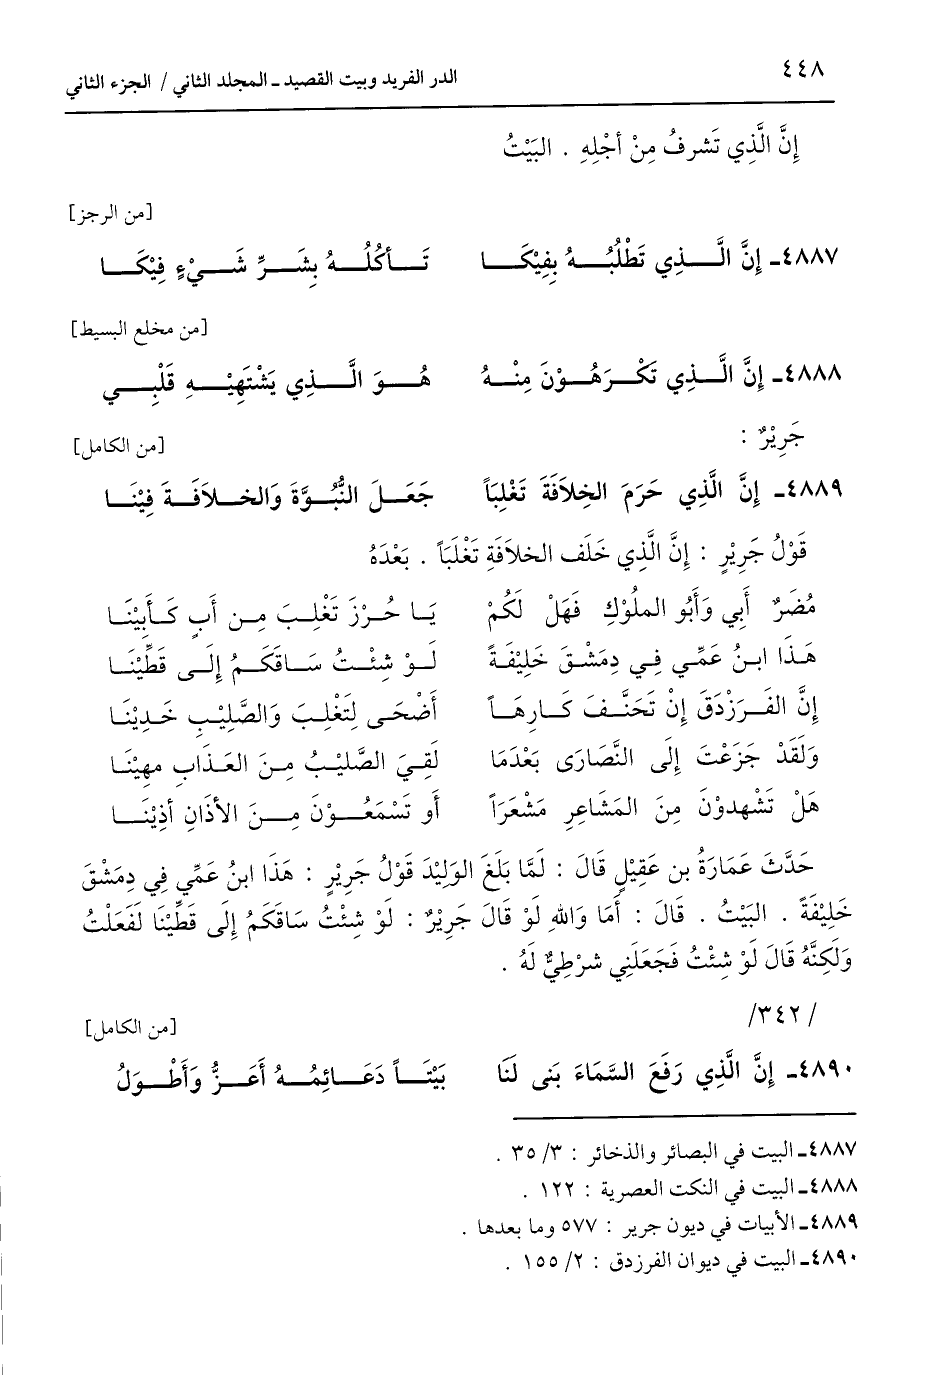 ٤٤٨ الدر الفريد وبيت القصيد ـ المجلد الثاني / الجزء الثاني
إِنَّ الَّذِي تَشرفُ مِنْ أجْلِهِ . البَيْتُ
[من الرجز]
٤٨٨٧ـ إِنَّ الَّـــذِي تَطْلُبُـــهُ بِفِيْكَـــا تَـــأكُلُـــهُ بِشَـــرِّ شَـــيْءٍ فِيْكَـــا
[من مخلع البسيط]
٤٨٨٨ـ إِنَّ الَّـــذِي تَكْـــرَهُـــوْنَ مِنْـــهُ هُـــوَ الَّـــذِي يَشْتَهِيْـــهِ قَلْبِـــي
جَرِيْرٌ :
[من الكامل]
٤٨٨٩ـ إِنَّ الَّذِي حَرَمَ الخِلاَفَةَ تَغْلِبَاً جَعَـلَ النُّبُـوَّةَ وَالخـلاَفَـةَ فِيْنَـا
قَوْلُ جَرِيْرٍ : إِنَّ الَّذِي خَلَف الخلاَفَةِ تَغْلَبَاً . بَعْدَهُ
مُضَرٌ أَبِي وَأَبُو الملُوْكِ فَهَلْ لَكُمْ يَـا حُـرْزَ تَغْلِـبَ مِـن أَبٍ كَـأَبِيْنَـا
هَـذَا ابـنُ عَمِّـي فِـي دِمَشْـقَ خَلِيْفَةً لَـوْ شِئْـتُ سَـاقَكَـمُ إِلَـى قَطِّيْنَـا
إِنَّ الفَـرَزْدَقَ إِنْ تَحَنَّـفَ كَـارِهَـاً أَضْحَـى لِتَغْلِبَ وَالصَّلِيْبِ خَدِيْنَا
وَلَقَدْ جَزَعْتَ إِلَى النَّصَارَى بَعْدَمَا لَقِيَ الصَّلِيْـبُ مِـنَ العَـذَابِ مهِيْنَـا
هَلْ تَشْهدوْنَ مِنَ المَشَاعِرِ مَشْعَرَاً أو تَسْمَعُـــوْنَ مِـــنَ الأذَانِ أذِيْنَـــا
حَدَّثَ عَمَارَةُ بن عَقِيْلٍ قَالَ : لَمَّا بَلَغَ الوَلِيْدَ قَوْلُ جَرِيْرٍ : هَذَا ابنُ عَمِّي فِي دِمَشْقَ
خَلِيْفَةً . البَيْتُ . قَالَ : أَمَا وَاللهِ لَوْ قَالَ جَرِيْرٌ : لَوْ شِئْتُ سَاقَكَمُ إِلَى قَطِّيْنَا لَفَعَلْتُ
وَلَكِنَّهُ قَالَ لَوْ شِئْتُ فَجَعَلَنِي شرْطِيٌّ لَهُ .
/٣٤٢/
[من الكامل]
٤٨٩٠ـ إِنَّ الَّذِي رَفَعَ السَّمَاءَ بَنى لَنَا بَيْتَـــاً دَعَـــائِمُـــهُ أَعَـــزُّ وَأَطْـــوَلُ
٤٨٨٧ـ البيت في البصائر والذخائر : ٣/ ٣٥ .
٤٨٨٨ـ البيت في النكت العصرية : ١٢٢ .
٤٨٨٩ـ الأبيات في ديون جرير : ٥٧٧ وما بعدها .
٤٨٩٠ـ البيت في ديوان الفرزدق : ٢/ ١٥٥ .